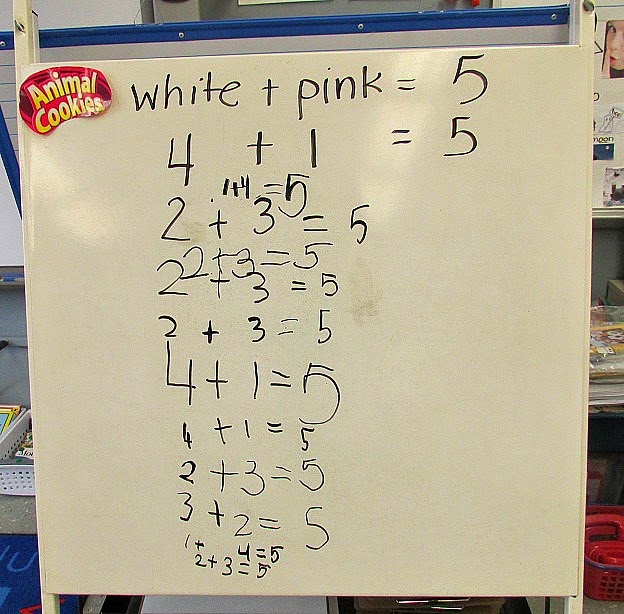 Animal
Cookies
white + pink = 5
4 + 1 = 5
1+4 = 5
2 + 3 = 5
2+3 = 5
2 + 3 = 5
2 + 3 = 5
4 + 1 = 5
4 + 1 = 5
2 + 3 = 5
3 + 2 = 5
1 + 4 = 5
2 + 3 = 5